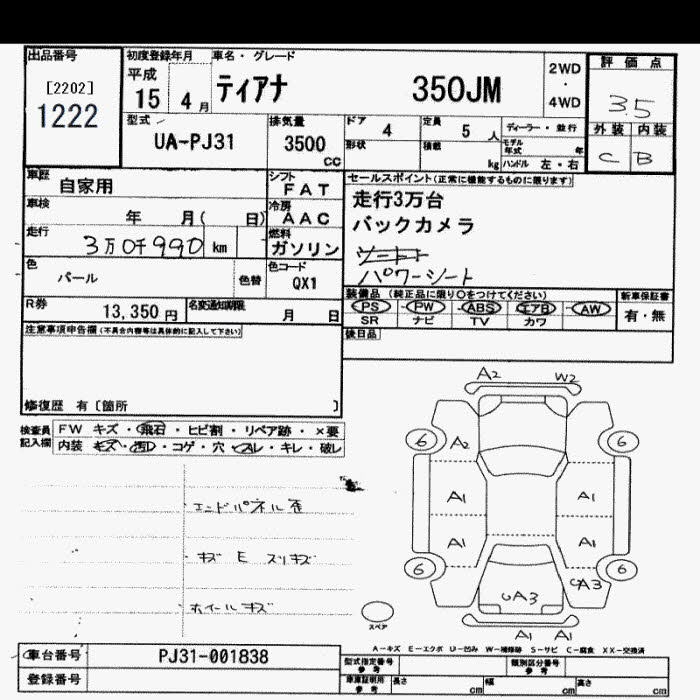 出品番号 初度登録年月 車名・グレード 評価点
[2202] 平成 ティアナ 350JM 2WD
1222 15 4 月 ・ 3.5
4WD
型式 排気量 ドア 4 定員 5 人 ディーラー・並行 外装 内装
UA-PJ31 3500 cc 形状 積載 kg モデル年式 年 C B
ハンドル 左・右
車歴 自家用 シフト FAT セールスポイント(正常に機能するものに限ります)
車検 年 月( 日) 冷房 AAC 走行3万台
走行 3万0千990 km 燃料 ガソリン バックカメラ
色 パール 色替 色コード QX1 パワーシート
R券 13,350 円 名変通知期限 月 日
装備品(純正品に限り○をつけてください) 新車保証書
PS ・ PW ・ ABS ・ エアB ・ AW 有・無
SR ナビ TV カワ
注意事項申告欄(不具合内容等は具体的に記入して下さい) 後日品
修復歴 有〔箇所 〕
検査員記入欄 FW キズ・飛石・ヒビ割・リペア跡・×要
内装 キズ・汚レ・コゲ・穴・スレ・キレ・破レ
エンドパネル歪
キズ E スリキズ
ホイールキズ
A2 W2
6 A2 6
A1 A1
A1 A1
6 6
UA3 UA3
A1 A1
スペア
A-キズ E-エクボ U-凹み W-補修跡 S-サビ C-腐食 XX-交換済
車台番号 PJ31-001838 型式指定番号 参考 類別区分番号 参考
登録番号 車庫証明用 参考 長さ cm 幅 cm 高さ cm